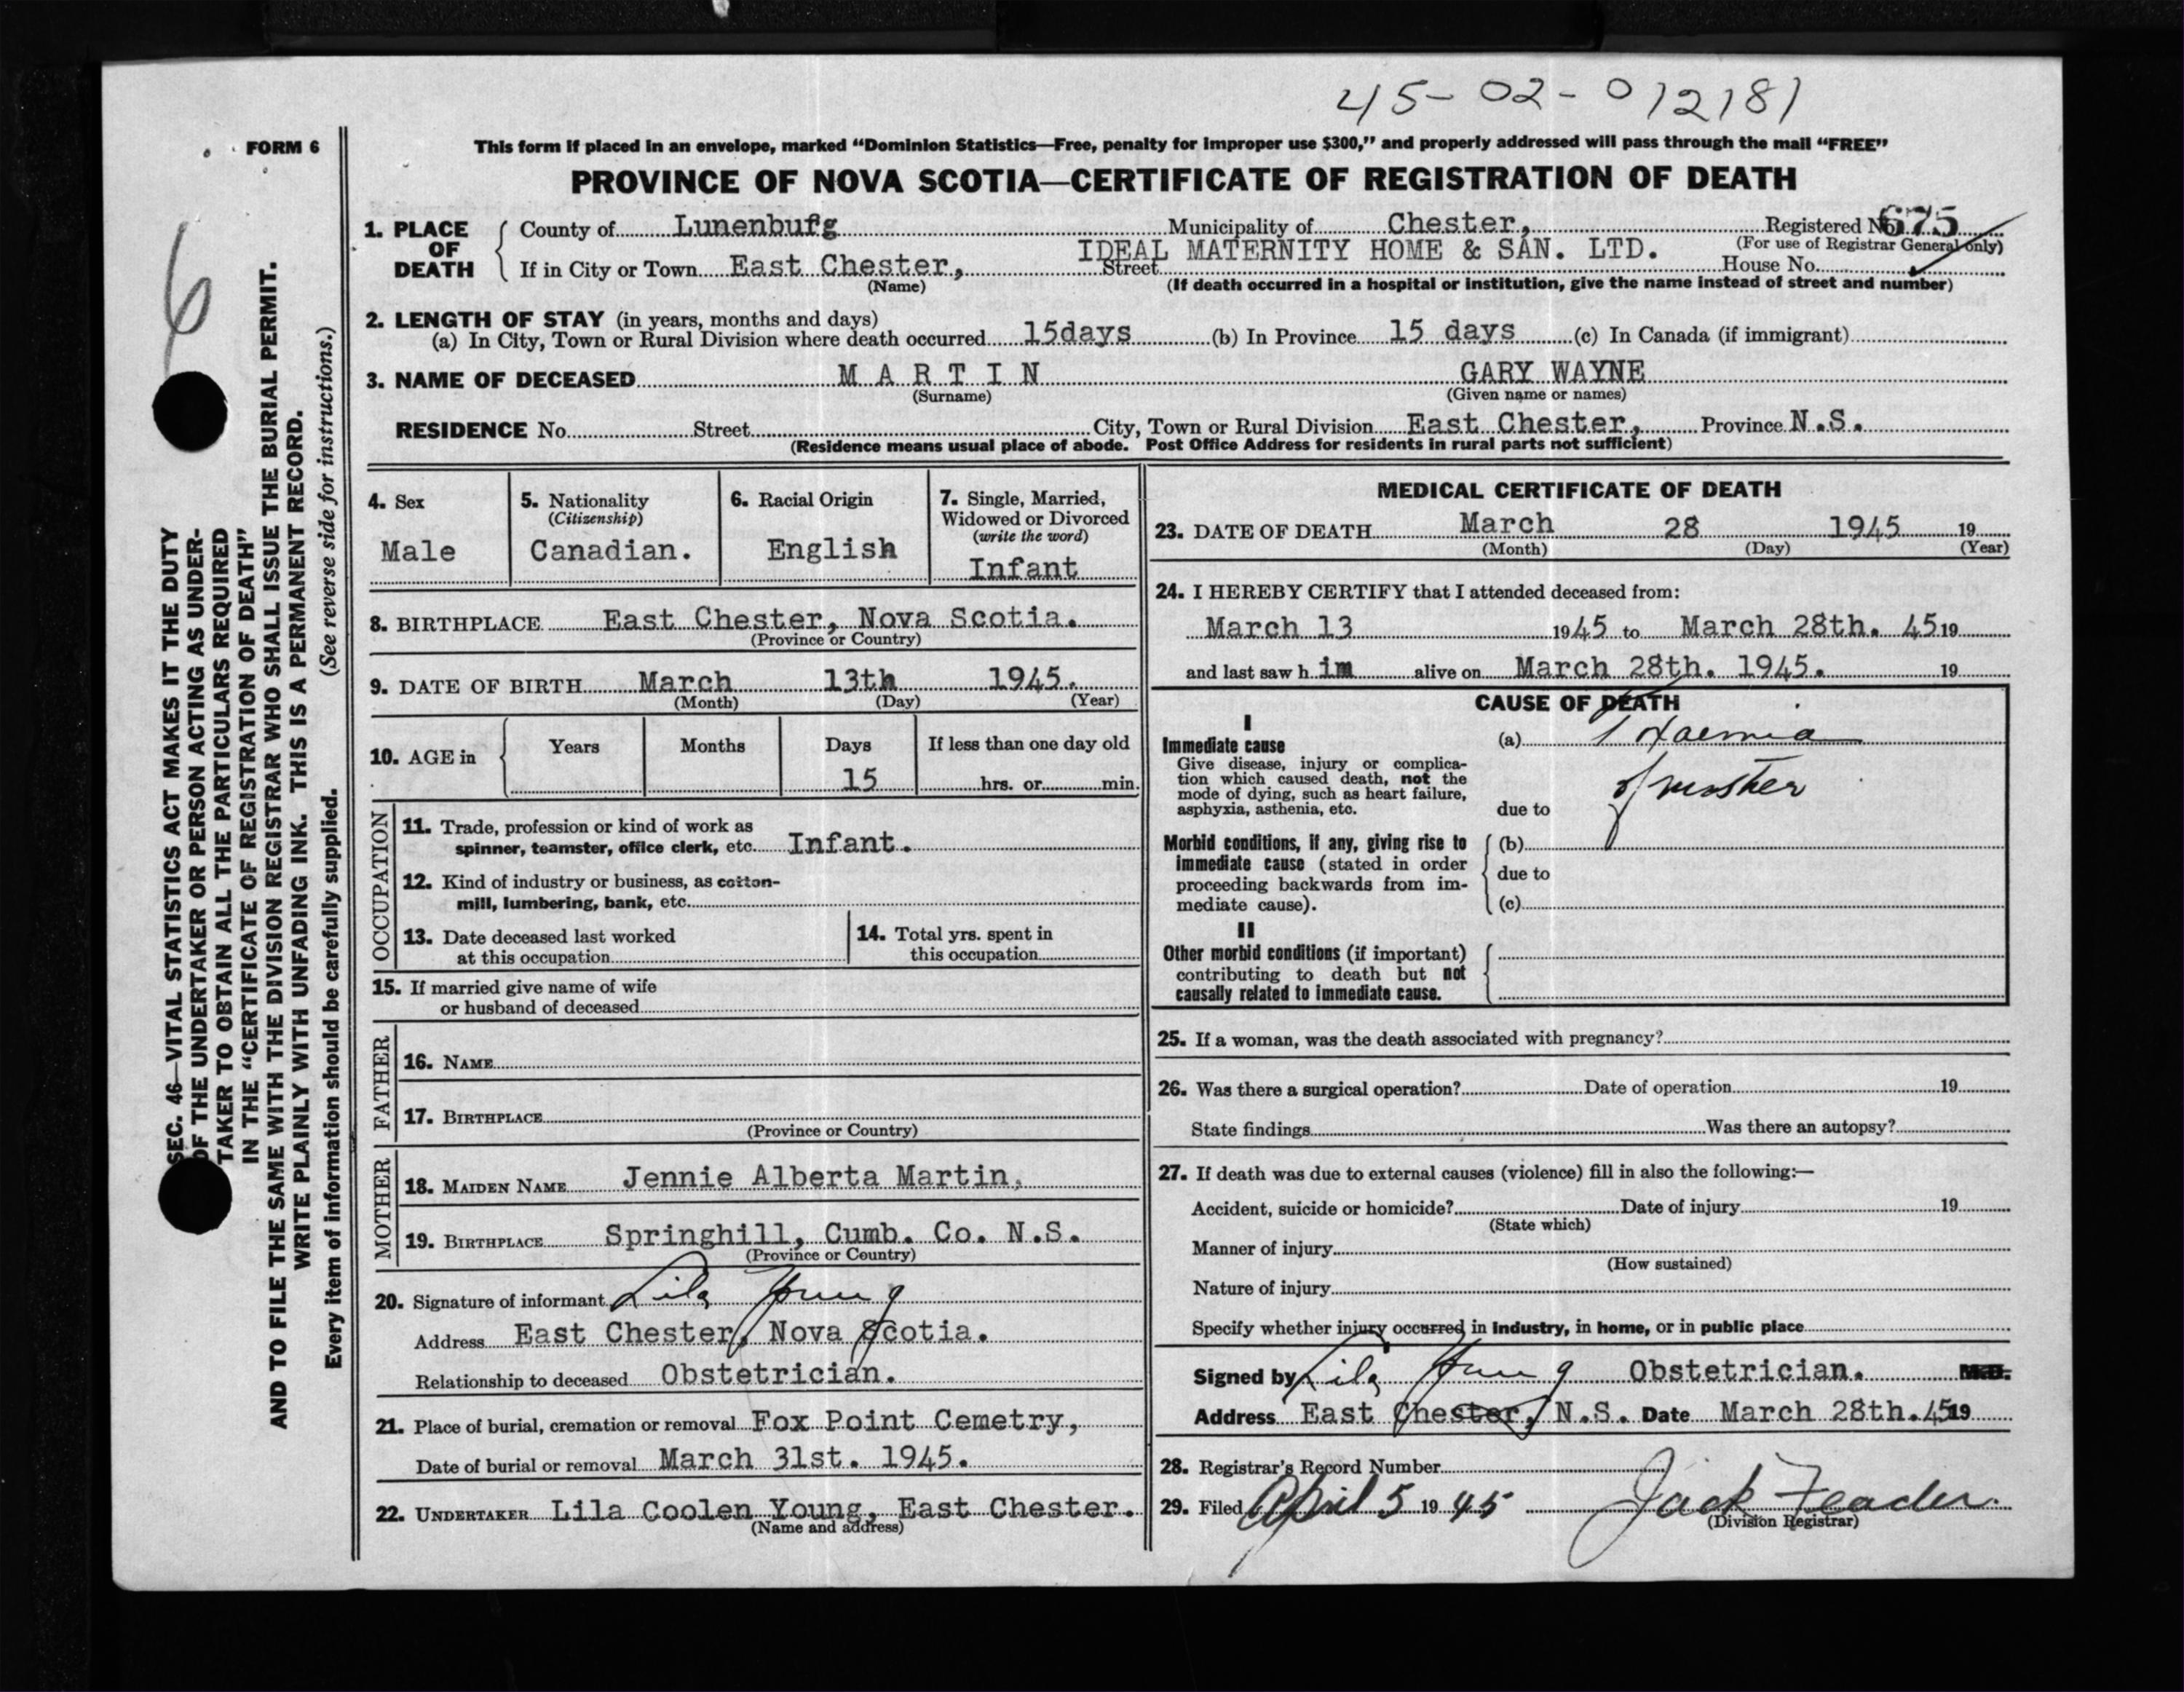 45-02-012181
FORM 6
This form if placed in an envelope, marked “Dominion Statistics—Free, penalty for improper use $300,” and properly addressed will pass through the mail “FREE”
PROVINCE OF NOVA SCOTIA—CERTIFICATE OF REGISTRATION OF DEATH
6
SEC. 46—VITAL STATISTICS ACT MAKES IT THE DUTY
OF THE UNDERTAKER OR PERSON ACTING AS UNDER-
TAKER TO OBTAIN ALL THE PARTICULARS REQUIRED
IN THE “CERTIFICATE OF REGISTRATION OF DEATH”
AND TO FILE THE SAME WITH THE DIVISION REGISTRAR WHO SHALL ISSUE THE BURIAL PERMIT.
WRITE PLAINLY WITH UNFADING INK. THIS IS A PERMANENT RECORD.
Every item of information should be carefully supplied. (See reverse side for instructions.)
1. PLACE OF DEATH County of Lunenburg Municipality of Chester, Registered No. 675
(For use of Registrar General only)
IDEAL MATERNITY HOME & SAN. LTD.
If in City or Town East Chester, Street House No.
(Name) (If death occurred in a hospital or institution, give the name instead of street and number)
2. LENGTH OF STAY (in years, months and days)
(a) In City, Town or Rural Division where death occurred 15days (b) In Province 15 days (c) In Canada (if immigrant)
3. NAME OF DECEASED M A R T I N GARY WAYNE
(Surname) (Given name or names)
RESIDENCE No. Street City, Town or Rural Division East Chester, Province N.S.
(Residence means usual place of abode. Post Office Address for residents in rural parts not sufficient)
4. Sex
Male
5. Nationality
(Citizenship)
Canadian.
6. Racial Origin
English
7. Single, Married,
Widowed or Divorced
(write the word)
Infant
8. BIRTHPLACE East Chester, Nova Scotia.
(Province or Country)
9. DATE OF BIRTH March 13th 1945.
(Month) (Day) (Year)
10. AGE in Years Months Days If less than one day old
15 hrs. or min.
OCCUPATION
11. Trade, profession or kind of work as
spinner, teamster, office clerk, etc. Infant.
12. Kind of industry or business, as cotton-
mill, lumbering, bank, etc.
13. Date deceased last worked
at this occupation
14. Total yrs. spent in
this occupation
15. If married give name of wife
or husband of deceased
FATHER
16. NAME
17. BIRTHPLACE
(Province or Country)
MOTHER
18. MAIDEN NAME Jennie Alberta Martin,
19. BIRTHPLACE Springhill, Cumb. Co. N.S.
(Province or Country)
20. Signature of informant Lila Young
Address East Chester, Nova Scotia.
Relationship to deceased Obstetrician.
21. Place of burial, cremation or removal Fox Point Cemetry,
Date of burial or removal March 31st. 1945.
22. UNDERTAKER Lila Coolen Young, East Chester.
(Name and address)
MEDICAL CERTIFICATE OF DEATH
23. DATE OF DEATH March 28 1945 19
(Month) (Day) (Year)
24. I HEREBY CERTIFY that I attended deceased from:
March 13 1945 to March 28th. 45 19
and last saw h im alive on March 28th. 1945. 19
CAUSE OF DEATH
I
Immediate cause
Give disease, injury or complica-
tion which caused death, not the
mode of dying, such as heart failure,
asphyxia, asthenia, etc.
(a) Toxaemia
of mother
due to
Morbid conditions, if any, giving rise to
immediate cause (stated in order
proceeding backwards from im-
mediate cause).
(b)
due to
(c)
II
Other morbid conditions (if important)
contributing to death but not
causally related to immediate cause.
25. If a woman, was the death associated with pregnancy?
26. Was there a surgical operation? Date of operation 19
State findings Was there an autopsy?
27. If death was due to external causes (violence) fill in also the following:—
Accident, suicide or homicide? Date of injury 19
(State which)
Manner of injury
(How sustained)
Nature of injury
Specify whether injury occurred in industry, in home, or in public place
Signed by Lila Young Obstetrician. M.D.
Address East Chester, N.S. Date March 28th. 45 19
28. Registrar's Record Number
29. Filed April 5 1945 Jack Feader
(Division Registrar)